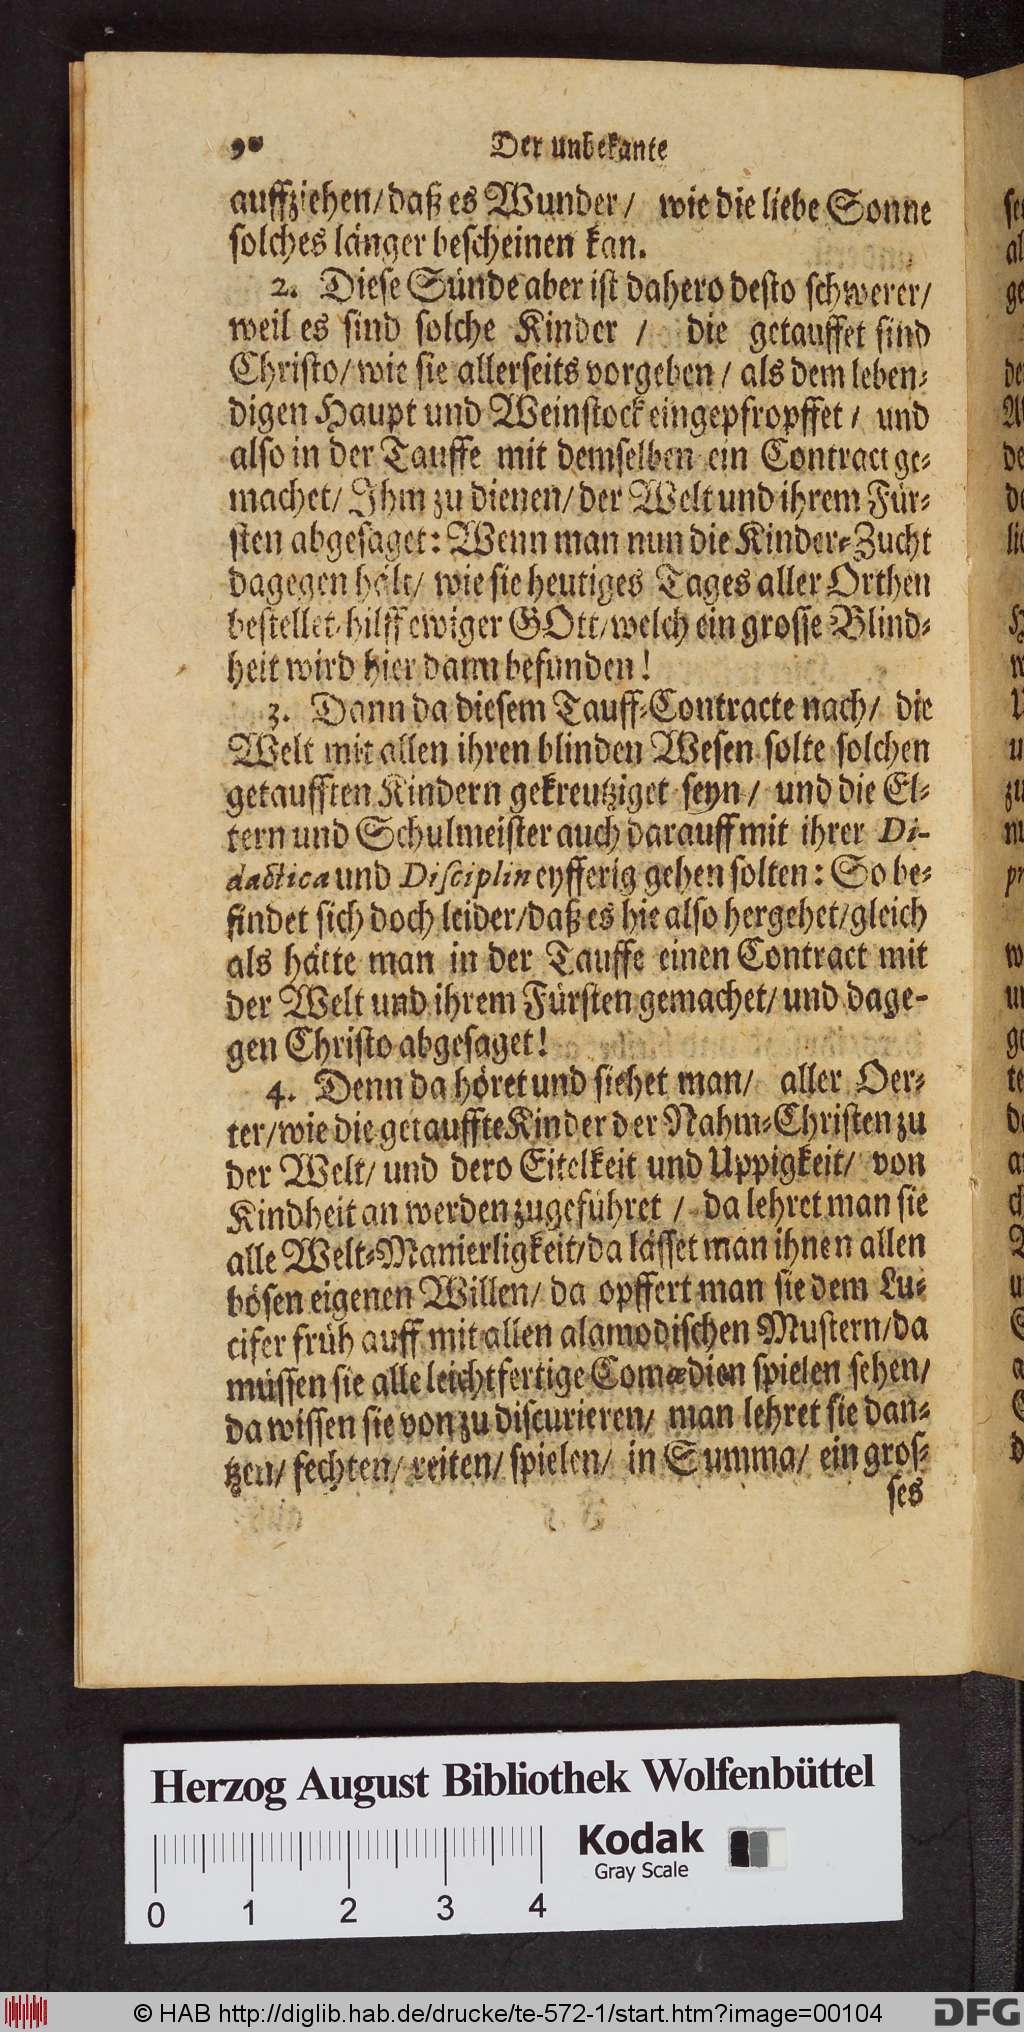 90 Der unbekante
auffziehen/ daß es Wunder/ wie die liebe Sonne
solches länger bescheinen kan.
2. Diese Sünde aber ist dahero desto schwerer/
weil es sind solche Kinder / die getauffet sind
Christo/ wie sie allerseits vorgeben / als dem leben-
digen Haupt und Weinstock eingepfropffet / und
also in der Tauffe mit demselben ein Contract ge-
machet/ Ihm zu dienen/ der Welt und ihrem Für-
sten abgesaget: Wenn man nun die Kinder-Zucht
dagegen hält/ wie sie heutiges Tages aller Orthen
bestellet/ hilff ewiger GOtt/ welch ein grosse Blind-
heit wird hier dann befunden!
3. Dann da diesem Tauff-Contracte nach/ die
Welt mit allen ihren blinden Wesen solte solchen
getaufften Kindern gekreutziget seyn / und die El-
tern und Schulmeister auch darauff mit ihrer Di-
dactica und Disciplin eyfferig gehen solten: So be-
findet sich doch leider/ daß es hie also hergehet/ gleich
als hätte man in der Tauffe einen Contract mit
der Welt und ihrem Fürsten gemachet/ und dage-
gen Christo abgesaget!
4. Denn da höret und siehet man/ aller Oer-
ter/ wie die getauffte Kinder der Nahm-Christen zu
der Welt/ und dero Eitelkeit und Uppigkeit/ von
Kindheit an werden zugeführet / da lehret man sie
alle Welt-Manierligkeit/ da lässet man ihnen allen
bösen eigenen Willen/ da opffert man sie dem Lu-
cifer früh auff mit allen alamodischen Mustern/ da
müssen sie alle leichtfertige Comœdien spielen sehen/
da wissen sie von zu discurieren/ man lehret sie dan-
tzen/ fechten/ reiten/ spielen/ in Summa/ ein gros-
ses
Herzog August Bibliothek Wolfenbüttel
Kodak
Gray Scale
0 1 2 3 4
© HAB http://diglib.hab.de/drucke/te-572-1/start.htm?image=00104
DFG